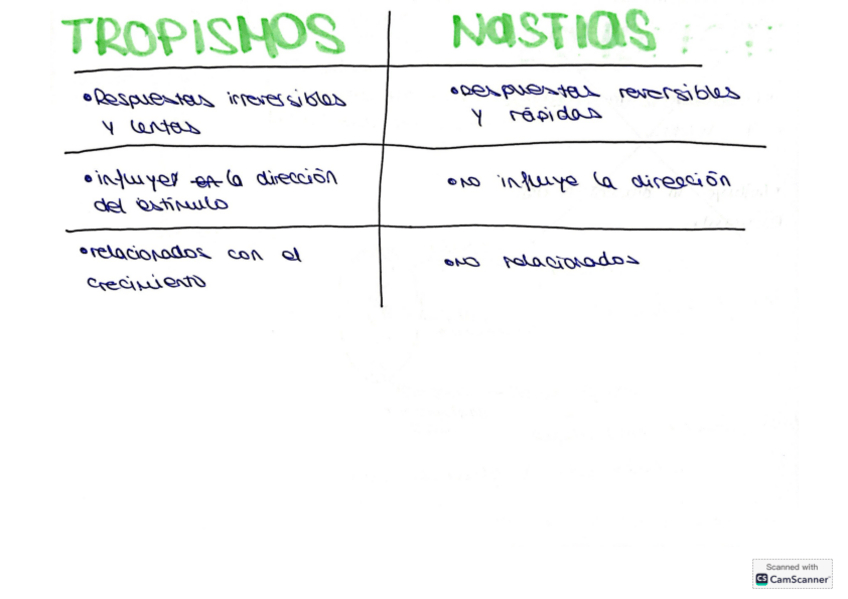 TROPISMOS
NASTIAS
•Respuestas irreversibles
y lentas
•Respuestas reversibles
y rápidas
•influyes la dirección
del estímulo
•no influye la dirección
•relacionados con el
crecimiento
•no relacionados
Scanned with
CS CamScanner